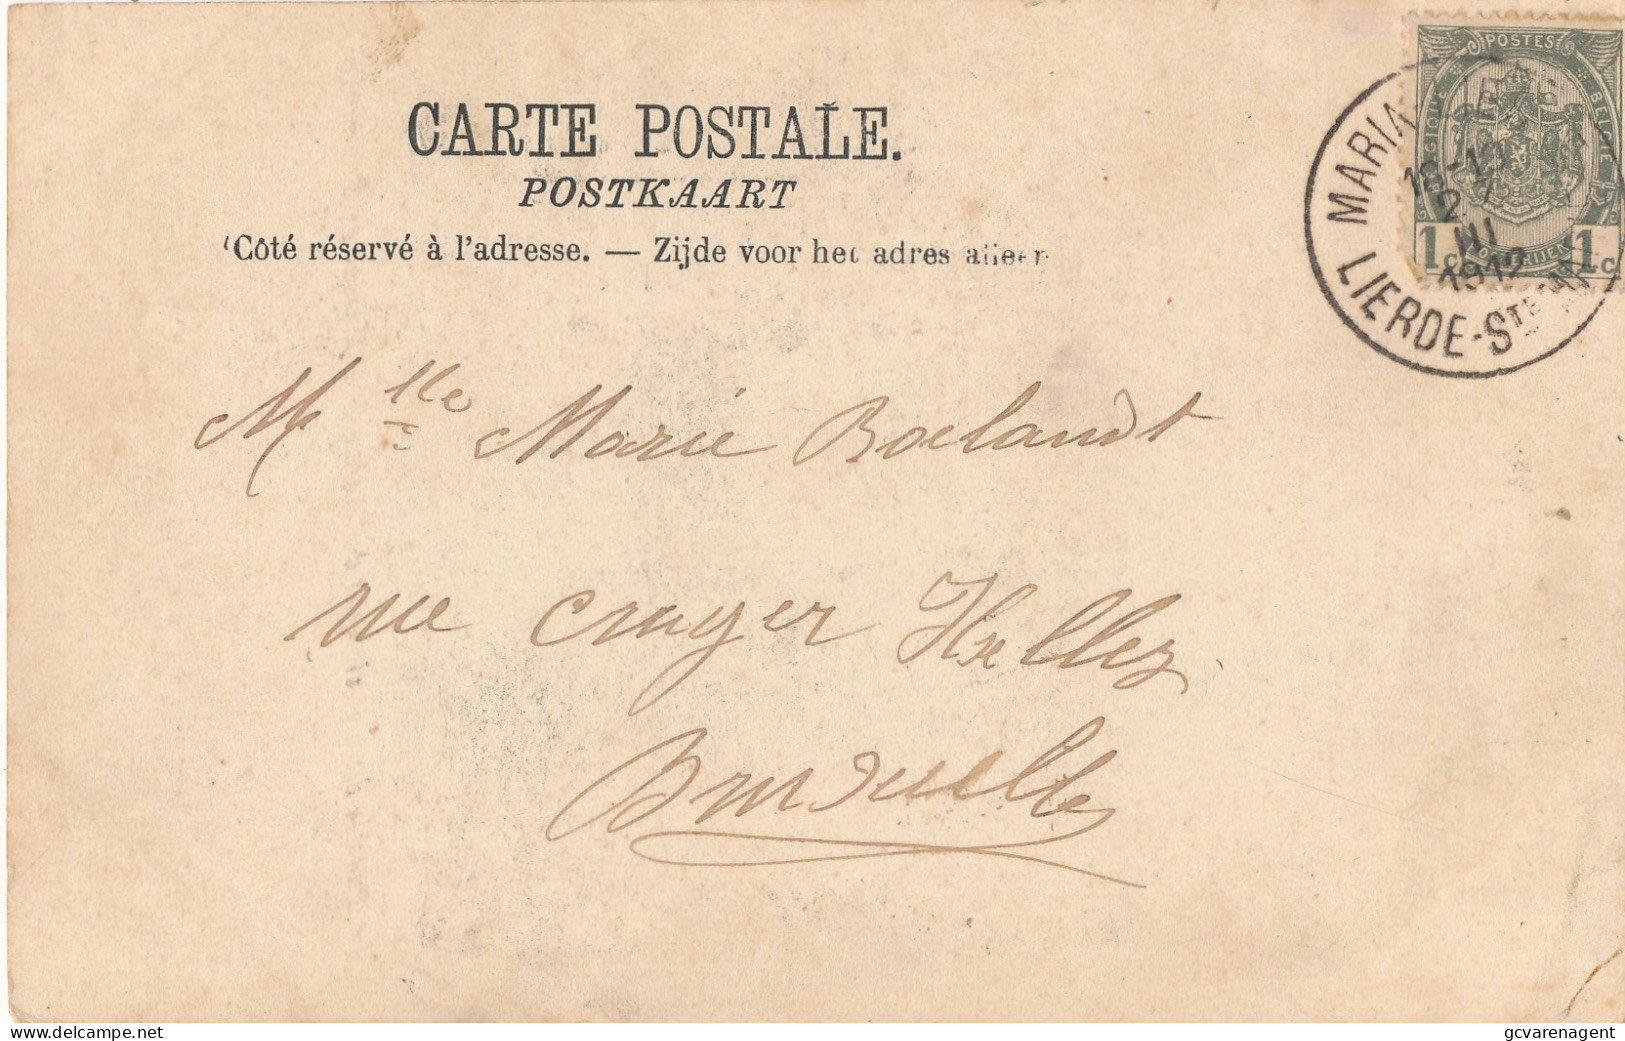 CARTE POSTALE.
POSTKAART
Côté réservé à l'adresse. — Zijde voor het adres alleen
POSTES
BELGIQUE BELGIE
1c 1c
MARIA
LIERDE-Ste
2 III
1912
Mlle Marie Boelandt
rue Crayer Ixelles
Bruxelles
www.delcampe.net
gcvarenagent